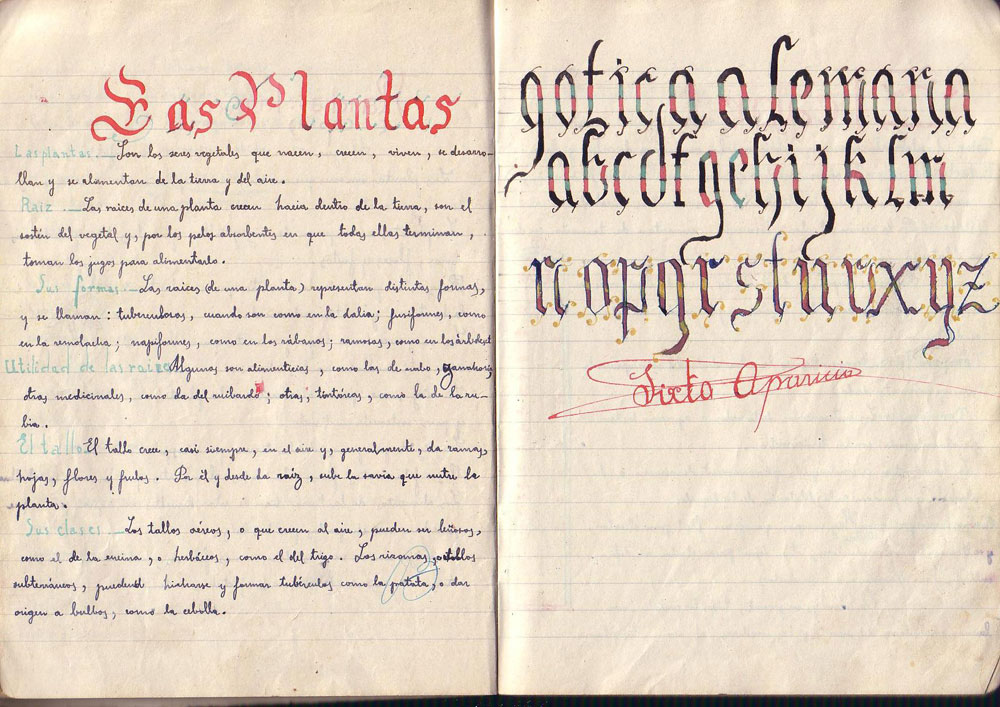 Las Plantas
Las plantas.— Son los seres vegetales que nacen, crecen, viven, se desarro-
llan y se alimentan de la tierra y del aire.
Raiz.— Las raices de una planta crecen hacia dentro de la tierra, son el
sostén del vegetal y, por los pelos absorbentes en que todas ellas terminan,
toman los jugos para alimentarlo.
Sus formas.— Las raices (de una planta) representan distintas formas,
y se llaman: tuberculosas, cuando son como en la dalia; fusiformes, como
en la remolacha; napiformes, como en los rábanos; ramosas, como en los árboles
Utilidad de las raices Algunos son alimenticias, como las de nabo, y zanahoria,
otras medicinales, como da del ruibardo; otras, tintóreas, como la de la ru-
bia.
El tallo El tallo crece, casi siempre, en el aire y, generalmente, da ramas,
hojas, flores y frutos. Por él y desde da raiz, sube la savia que nutre la
planta.
Sus clases.— Los tallos aéreos, o que crecen al aire, pueden ser leñosos,
como el de la encina, o herbáceos, como el del trigo. Los rizomas, o tallos
subterráneos, pueden hicharse y formar tubérculos como la patata, o dar
origen a bulbos, como la cebolla.
gotica alemana
abcdfgehijklm
nopqrsturxyz
Sixto Aparicio